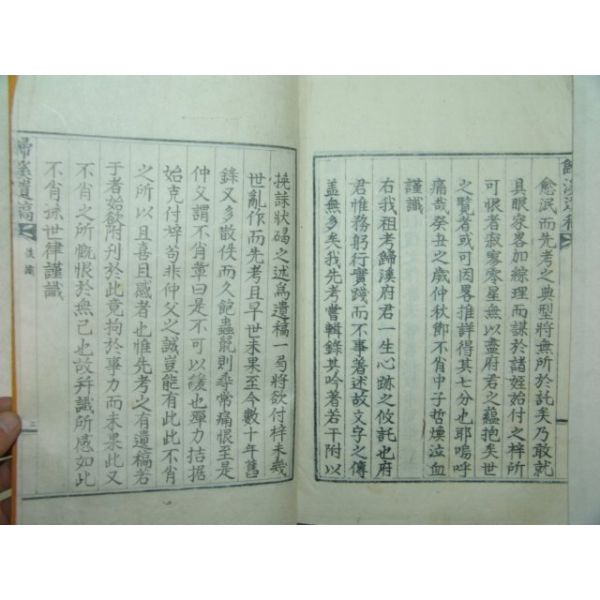 愈泯而先考之典型將無所於託矣乃敢就
具眼家畧加綜理而謀於諸姪始付之梓所
可恨者寂寥零星無以盡府君之蘊抱矣世
之覽者或可因畧推詳得其七分也耶嗚呼
痛哉癸丑之歲仲秋節不肖中子哲煥泣血
謹識
右我祖考歸溪府君一生心跡之攸託也府
君惟務躬行實踐而不事著述故文字之傳
盖無多矣我先考嘗輯錄其吟著若干附以
挽誄狀碣之述爲遺稿一局將欲付梓未幾
世亂作而先考且早世未果至今數十年舊
錄又多散佚而久飽蟲蝕則尋常痛恨至是
仲父謂不肖輩曰是不可以緩也殫力拮据
始克付埤苟非仲父之誠豈能有此此不肖
之所以且喜且感者也惟先考之有遺稿若
于者始欲附刊於此竟拘於事力而未果此又
不肖之所慨恨於無已也故幷識所感如此
不肖孫世律謹識
歸溪遺稿
跋
識